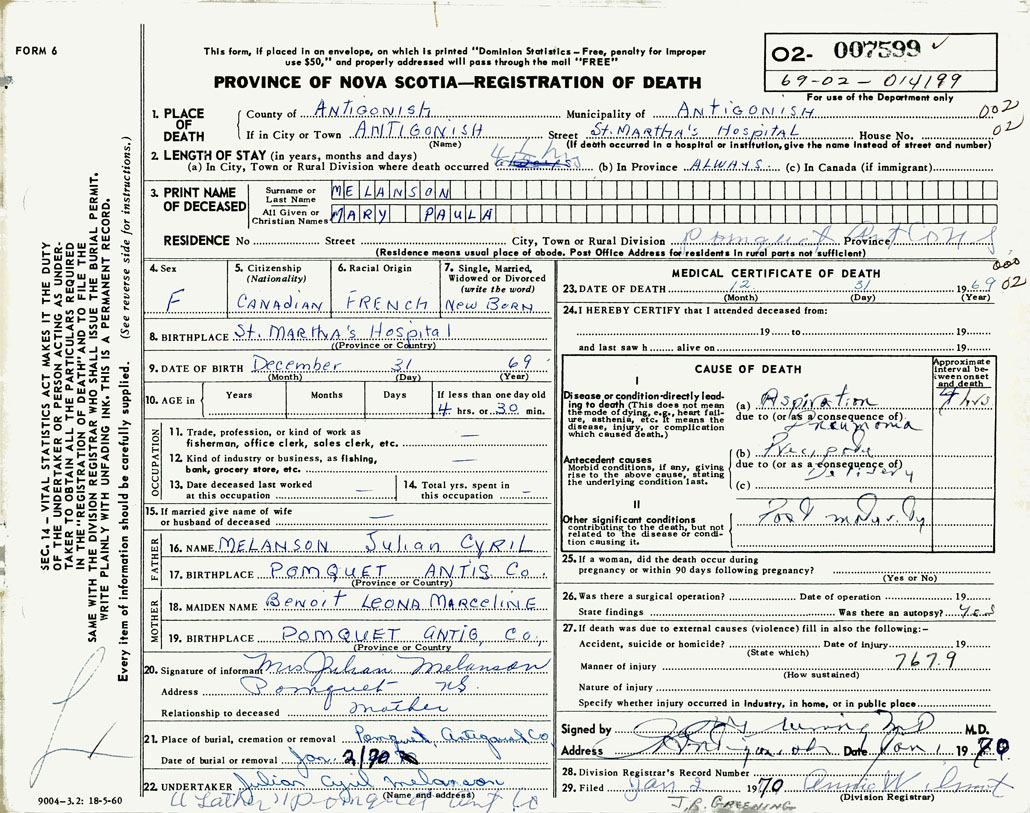 FORM 6
This form, if placed in an envelope, on which is printed "Dominion Statistics – Free, penalty for improper
use $50," and properly addressed will pass through the mail "FREE"
PROVINCE OF NOVA SCOTIA—REGISTRATION OF DEATH
02- 007599
69-02-014199
For use of the Department only
002
02
1. PLACE OF DEATH County of ANTIGONISH Municipality of ANTIGONISH
If in City or Town ANTIGONISH Street St. MARTHA'S HOSPITAL House No.
(Name) (If death occurred in a hospital or institution, give the name instead of street and number)
2. LENGTH OF STAY (in years, months and days)
(a) In City, Town or Rural Division where death occurred (b) In Province ALWAYS. (c) In Canada (if immigrant)
3. PRINT NAME OF DECEASED Surname or Last Name MELANSON
All Given or Christian Names MARY PAULA
RESIDENCE No Street City, Town or Rural Division Pomquet Ant Co Province N S
(Residence means usual place of abode. Post Office Address for residents in rural parts not sufficient)
4. Sex F
5. Citizenship (Nationality) CANADIAN
6. Racial Origin FRENCH
7. Single, Married, Widowed or Divorced (write the word) NEW BORN
8. BIRTHPLACE St. MARTHA'S HOSPITAL
(Province or Country)
9. DATE OF BIRTH December 31 69
(Month) (Day) (Year)
10. AGE in Years Months Days If less than one day old
4 hrs. or 30 min.
OCCUPATION
11. Trade, profession, or kind of work as
fisherman, office clerk, sales clerk, etc. —
12. Kind of industry or business, as fishing,
bank, grocery store, etc. —
13. Date deceased last worked
at this occupation —
14. Total yrs. spent in
this occupation –
15. If married give name of wife
or husband of deceased —
FATHER
16. NAME MELANSON Julian CYRIL
17. BIRTHPLACE POMQUET ANTIG Co.
(Province or Country)
MOTHER
18. MAIDEN NAME Benoit LEONA MARCELINE
19. BIRTHPLACE POMQUET ANTIG, CO.,
(Province or Country)
20. Signature of informant Mrs Julian Melanson
Address Pomquet NS.
Relationship to deceased mother
21. Place of burial, cremation or removal Pomquet, Antigonish Co
Date of burial or removal Jan. 2/70
22. UNDERTAKER Julian Cyril Melanson
(Name and address)
(Father) Pomquet Ant Co
9004–3.2: 18-5-60
MEDICAL CERTIFICATE OF DEATH
000
02
23. DATE OF DEATH 12 31 1969
(Month) (Day) (Year)
24. I HEREBY CERTIFY that I attended deceased from:
19 to 19
and last saw h alive on 19
CAUSE OF DEATH
Approximate interval between onset and death
I
Disease or condition directly leading to death (This does not mean the mode of dying, e.g., heart failure, asthenia, etc. It means the disease, injury, or complication which caused death.)
(a) Aspiration 4 hrs
due to (or as a consequence of)
Pneumonia
Antecedent causes
Morbid conditions, if any, giving rise to the above cause, stating the underlying condition last.
(b)
due to (or as a consequence of)
Delivery
(c)
II
Other significant conditions
contributing to the death, but not related to the disease or condition causing it.
25. If a woman, did the death occur during
pregnancy or within 90 days following pregnancy?
(Yes or No)
26. Was there a surgical operation? Date of operation 19
State findings Was there an autopsy? Yes
27. If death was due to external causes (violence) fill in also the following:–
Accident, suicide or homicide? Date of injury 19
(State which)
Manner of injury 767.9
(How sustained)
Nature of injury
Specify whether injury occurred in Industry, in home, or in public place
Signed by M.D.
Address Antigonish Date Jan 1 1970
28. Division Registrar's Record Number
29. Filed Jan 2 1970
(Division Registrar)
J.B. GREENING
SEC. 14 – VITAL STATISTICS ACT MAKES IT THE DUTY
OF THE UNDERTAKER OR PERSON ACTING AS UNDER-
TAKER TO OBTAIN ALL THE PARTICULARS REQUIRED
IN THE "REGISTRATION OF DEATH" AND TO FILE THE
SAME WITH THE DIVISION REGISTRAR WHO SHALL ISSUE THE BURIAL PERMIT.
WRITE PLAINLY WITH UNFADING INK. THIS IS A PERMANENT RECORD.
Every item of information should be carefully supplied. (See reverse side for instructions.)